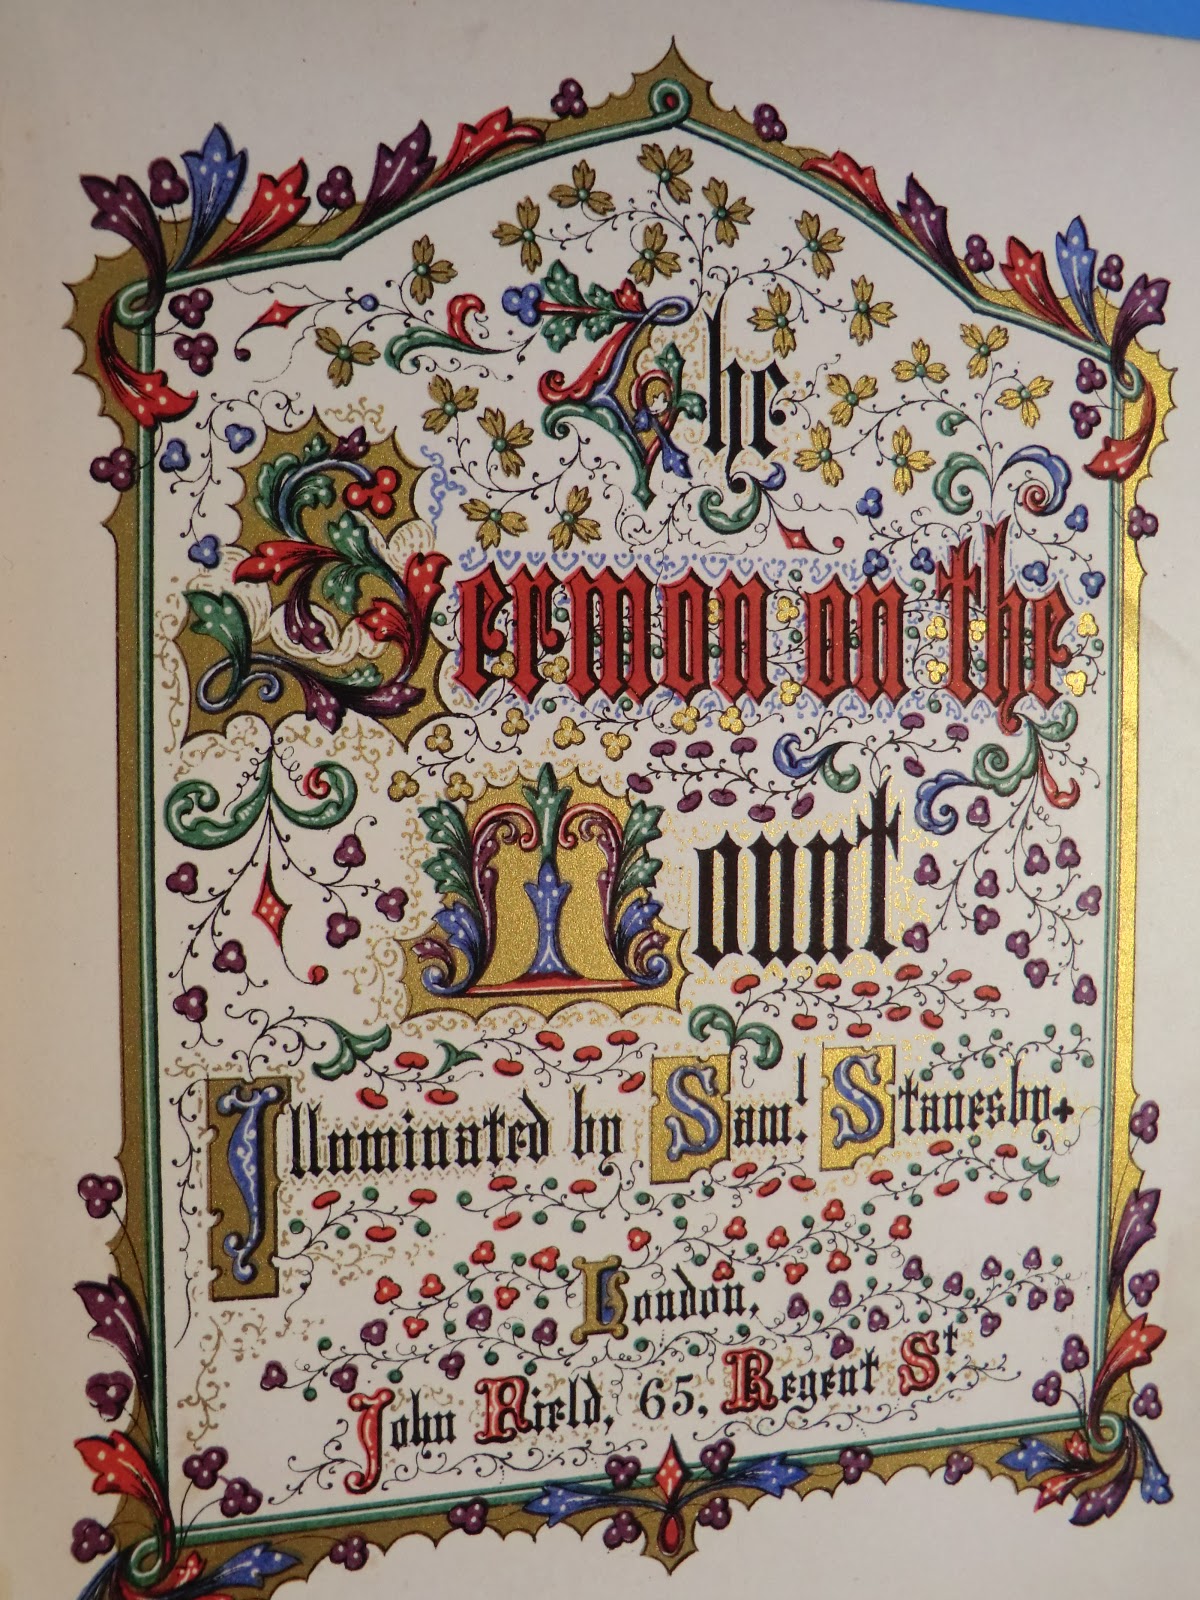 The
Sermon on the
Mount
Illuminated by Sam.l Stanesby.
London,
John Field, 65, Regent St.